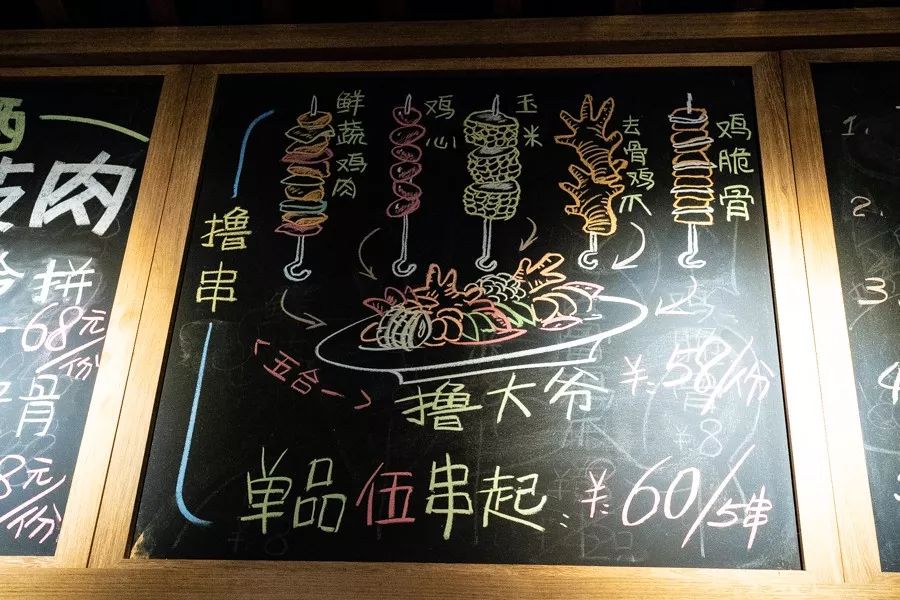 酒
肉
拼
68元/份
骨
8元/份
撸串
鲜蔬鸡肉
鸡心
玉米
去骨鸡爪
鸡脆骨
<五合一>
撸大爷 ¥58/份
单品伍串起 ¥60/5串
1.
2.
3.
4